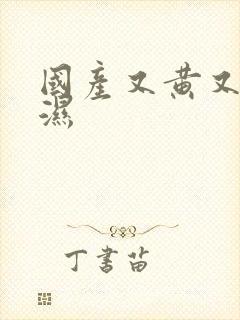 國產又黃又
濕
丁書苗